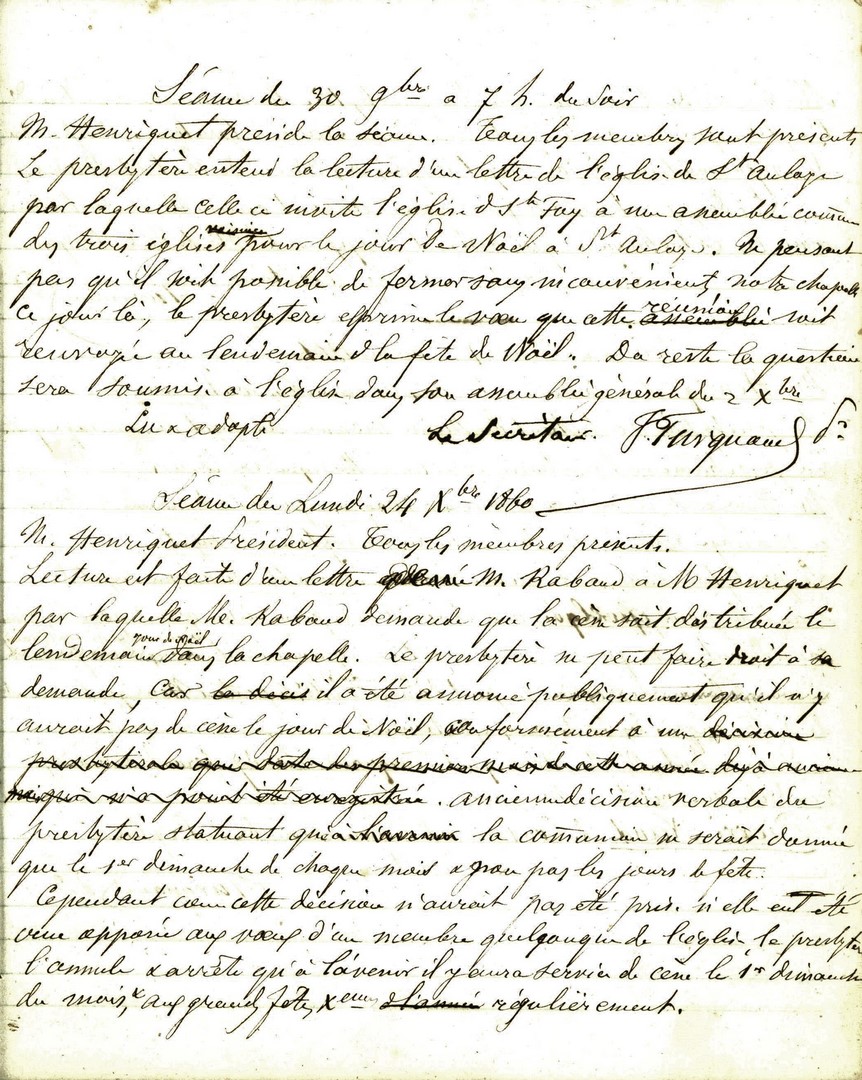 Séance du 30 9bre a 7 h. du soir
M. Henriquet préside la séance. Tous les membres sont présents
Le presbytère entend la lecture d'une lettre de l'église de St Aulaye
par laquelle celle ci invite l'église d Ste Foy à une assemblée commune
des trois églises voisines pour le jour de Noël à St Aulaye. Ne pensant
pas qu'il soit possible de fermer sans inconvénient notre chapelle
ce jour là, le presbytère exprime le vœu que cette assemblée réunion soit
renvoyée au lendemain d la fête de Noël. Du reste la question
sera soumise à l'église dans son assemblée générale du 2 Xbre
Lu & adopté Le Secrétaire. J. Turquand
Séance du Lundi 24 Xbre 1860
M. Henriquet Président. Tous les membres présents.
Lecture est faite d'une lettre M. Rabaud à M Henriquet
par laquelle M. Rabaud demande que la cène soit distribuée le
lendemain jour de Noël dans la chapelle. Le presbytère ne peut faire droit à sa
demande, car la décis il a été annoncé publiquement qu'il n'y
aurait pas de cène le jour de Noël, conformément à une décision
presbytérale qui date des premiers mois de cette année déjà ancienne
mais qui n'a point été enregistrée. ancienne décision verbale du
presbytère statuant qu'à l'avenir la communion ne serait donnée
que le 1er dimanche de chaque mois & non pas les jours de fête.
Cependant comme cette décision n'aurait pas été prise si elle eut été
venue opposée aux vœux d'un membre quelconque de l'église, le presbytère
l'annule & arrête qu'à l'avenir il y aura service de cène le 1er dimanche
du mois, & aux grandes fêtes, Xennes d'année régulièrement.